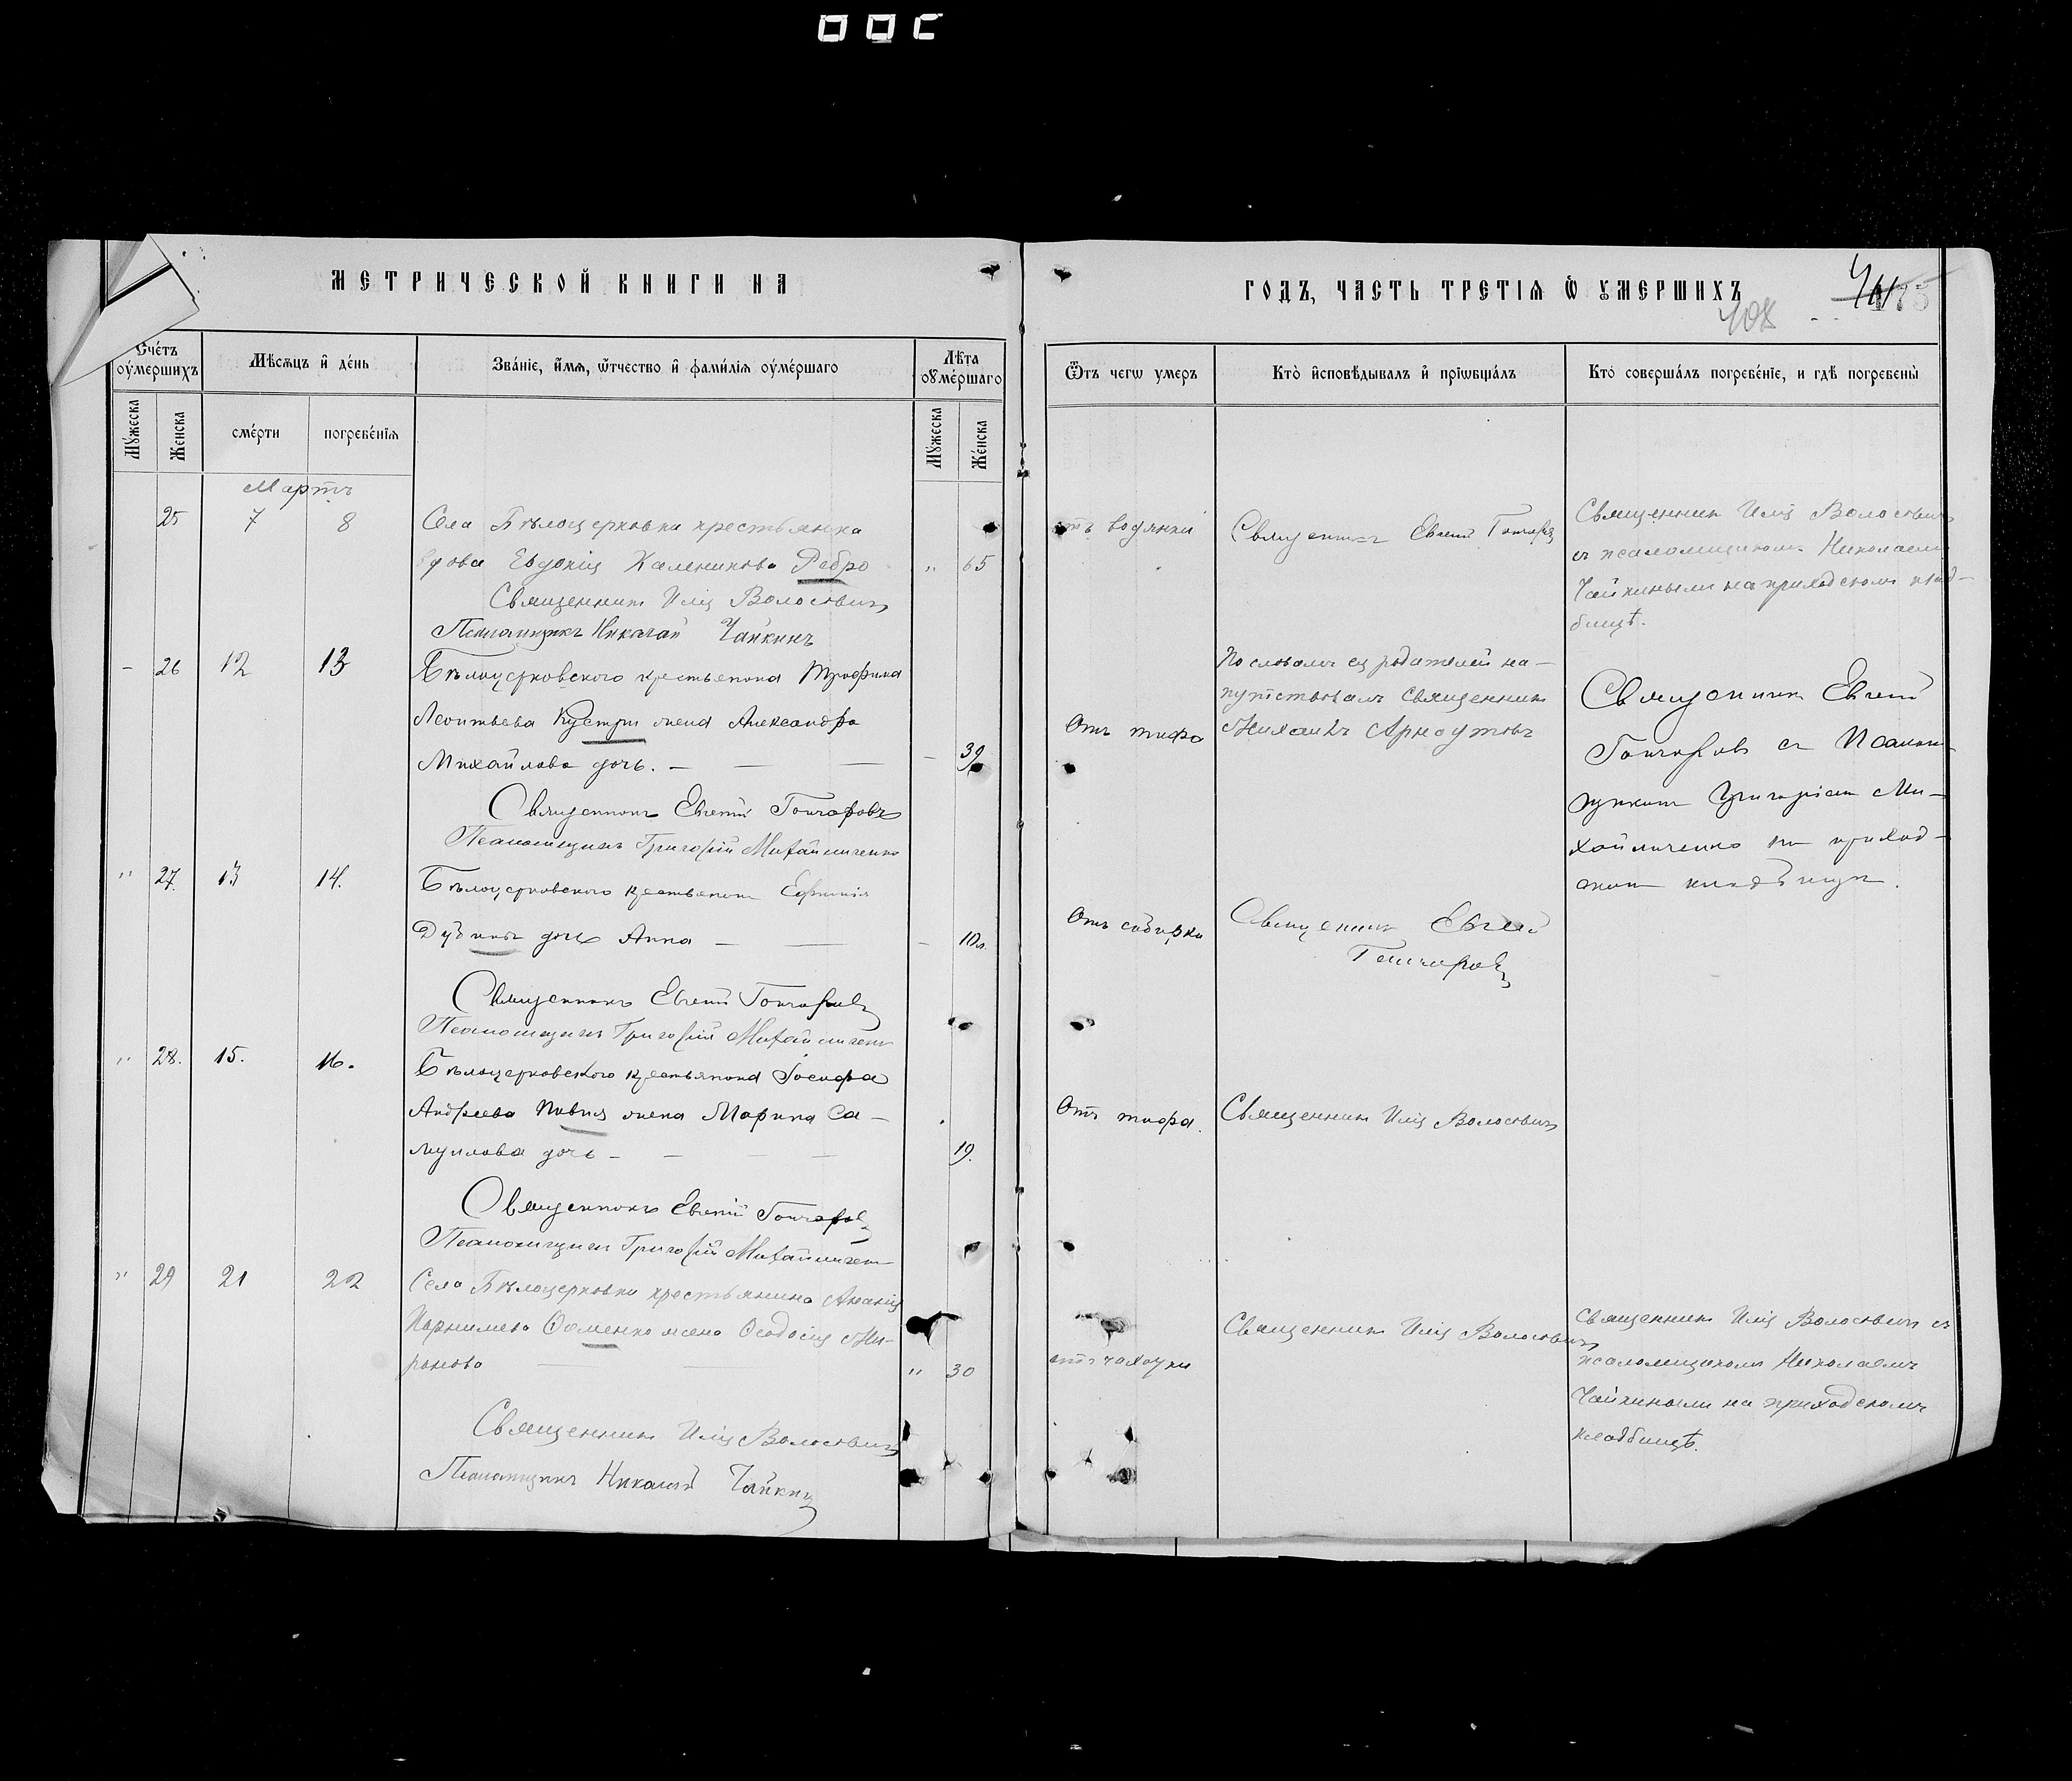 МЕТРИЧЕСКОЙ КНИГИ НА
Счетъ оумершихъ
Мѣсяцъ и день
Званіе, имя, отчество и фамилія оумершаго
Лѣта оумершаго
Мужеска
Женска
смерти
погребенія
Мужеска
Женска
Мартъ
25 7 8 Села Бѣлоцерковки крестьянка
вдова Евдокія Каленикова Ребро " 65
Священникъ Илія Волосевичъ
Псаломщикъ Николай Чайкинъ
- 26 12 13 Бѣлоцерковского крестьянина Трофима
Леонтьева жена Александра
Михайлова дочь. — — — - 39
Священникъ Евгеній Гончаровъ
Псаломщикъ Григорій Михайличенко
" 27. 13 14. Бѣлоцерковского крестьянина
дочь Анна — — - 10
Священникъ Евгеній Гончаровъ
Псаломщикъ Григорій Михайличенко
" 28. 15. 16. Бѣлоцерковского крестьянина Іосифа
Андреева жена Марина Са-
муилова дочь — — — — 19.
Священникъ Евгеній Гончаровъ
Псаломщикъ Григорій Михайличенко
" 29 21 22 Села Бѣлоцерковки крестьянина Ананія
Фоменко жена Феодосія Ми-
ронова — — " 30
Священникъ Илія Волосевичъ
Псаломщикъ Николай Чайкинъ
ГОДЪ, ЧАСТЬ ТРЕТІЯ Ѽ ОУМЕРШИХЪ
408
Ѿтъ чегѡ умеръ
Кто исповѣдывалъ и пріобщалъ
Кто совершалъ погребеніе, и гдѣ погребены
отъ водянки
Священникъ Евгеній Гончаровъ
Священникъ Илія Волосевичъ
съ псаломщикомъ Николаемъ
Чайкинымъ на приходскомъ клад-
бищѣ.
Отъ тифа
По словамъ ея родителей на-
путствовалъ священникъ
Михаилъ Арнаутовъ
Священникъ Евгеній
Гончаровъ съ Псалом-
щикомъ Григоріемъ Ми-
хайличенко на приход-
скомъ кладбищѣ.
Священникъ Евгеній
Гончаровъ
Отъ тифа.
Священникъ Илія Волосевичъ
отъ чахотки
Священникъ Илія Волосевичъ
Священникъ Илія Волосевичъ съ
псаломщикомъ Николаемъ
Чайкинымъ на приходскомъ
кладбищѣ.